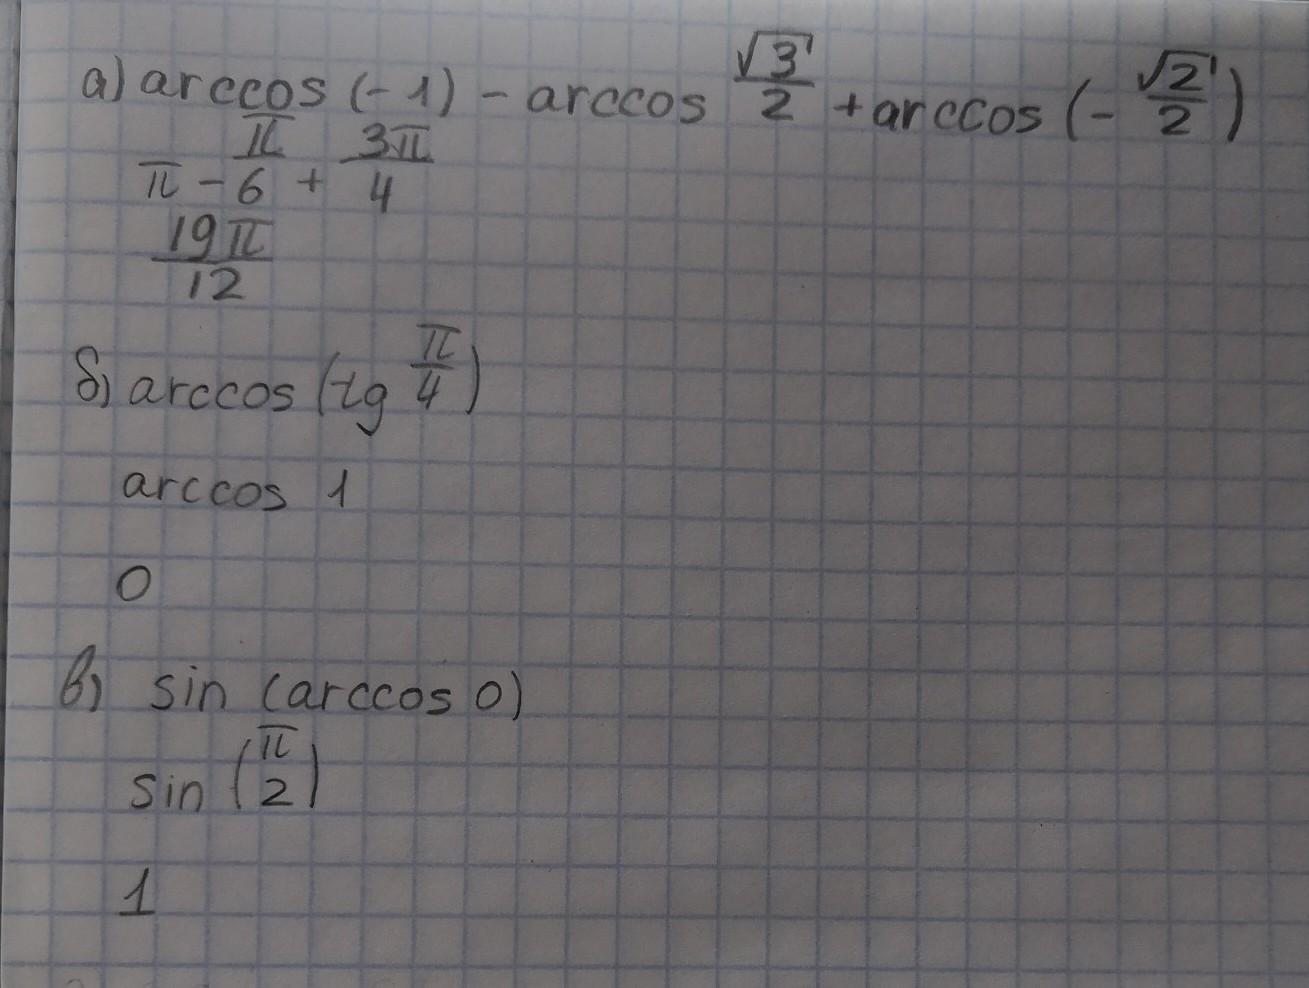 а) arccos (-1) - arccos √3/2 + arccos (- √2/2)
π - π/6 + 3π/4
19π/12
б) arccos (tg π/4)
arccos 1
0
в) sin (arccos 0)
sin (π/2)
1